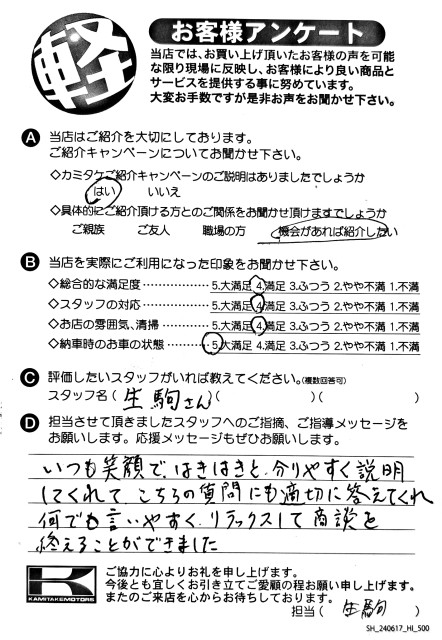 軽
お客様アンケート
当店では、お買い上げ頂いたお客様の声を可能
な限り現場に反映し、お客様により良い商品と
サービスを提供する事に努めています。
大変お手数ですが是非お声をお聞かせ下さい。
A 当店はご紹介を大切にしております。
ご紹介キャンペーンについてお聞かせ下さい。
◇カミタケご紹介キャンペーンのご説明はありましたでしょうか
はい いいえ
◇具体的にご紹介頂ける方とのご関係をお聞かせ頂けますでしょうか
ご親族 ご友人 職場の方 機会があれば紹介したい
B 当店を実際にご利用になった印象をお聞かせ下さい。
◇総合的な満足度…………… 5.大満足 4.満足 3.ふつう 2.やや不満 1.不満
◇スタッフの対応…………… 5.大満足 4.満足 3.ふつう 2.やや不満 1.不満
◇お店の雰囲気、清掃……… 5.大満足 4.満足 3.ふつう 2.やや不満 1.不満
◇納車時のお車の状態……… 5.大満足 4.満足 3.ふつう 2.やや不満 1.不満
C 評価したいスタッフがいれば教えてください。(複数回答可)
スタッフ名 ( 生駒さん )( )( )
D 担当させて頂きましたスタッフへのご指摘、ご指導メッセージを
お願いします。応援メッセージもぜひお願いします。
いつも笑顔で、はきはきと、分りやすく説明
してくれて、こちらの質問にも適切に答えてくれ
何でも言いやすく、リラックスして商談を
終えることができました
K
KAMITAKEMOTORS
ご協力に心よりお礼を申し上げます。
今後とも宜しくお引き立てご愛顧の程お願い申し上げます。
またのご来店を心からお待ちしております。
担当 ( 生駒 )
SH_240617_HI_500